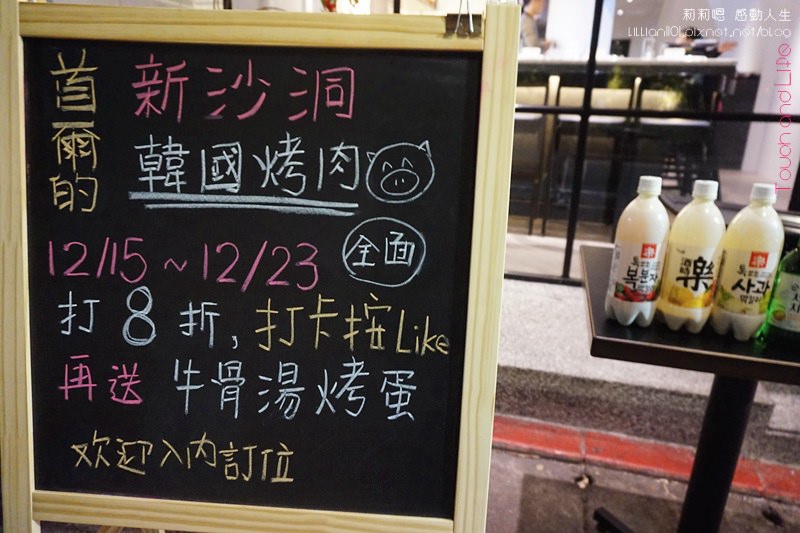 莉莉嗯 感動人生
LiLLian1101.pixnet.net/blog
Touch and Life
首爾的
新沙洞
韓國烤肉
12/15~12/23 全面
打8折,打卡按Like
再送 牛骨湯烤蛋
欢迎入內訂位
복분자
樂
사과
막걸리